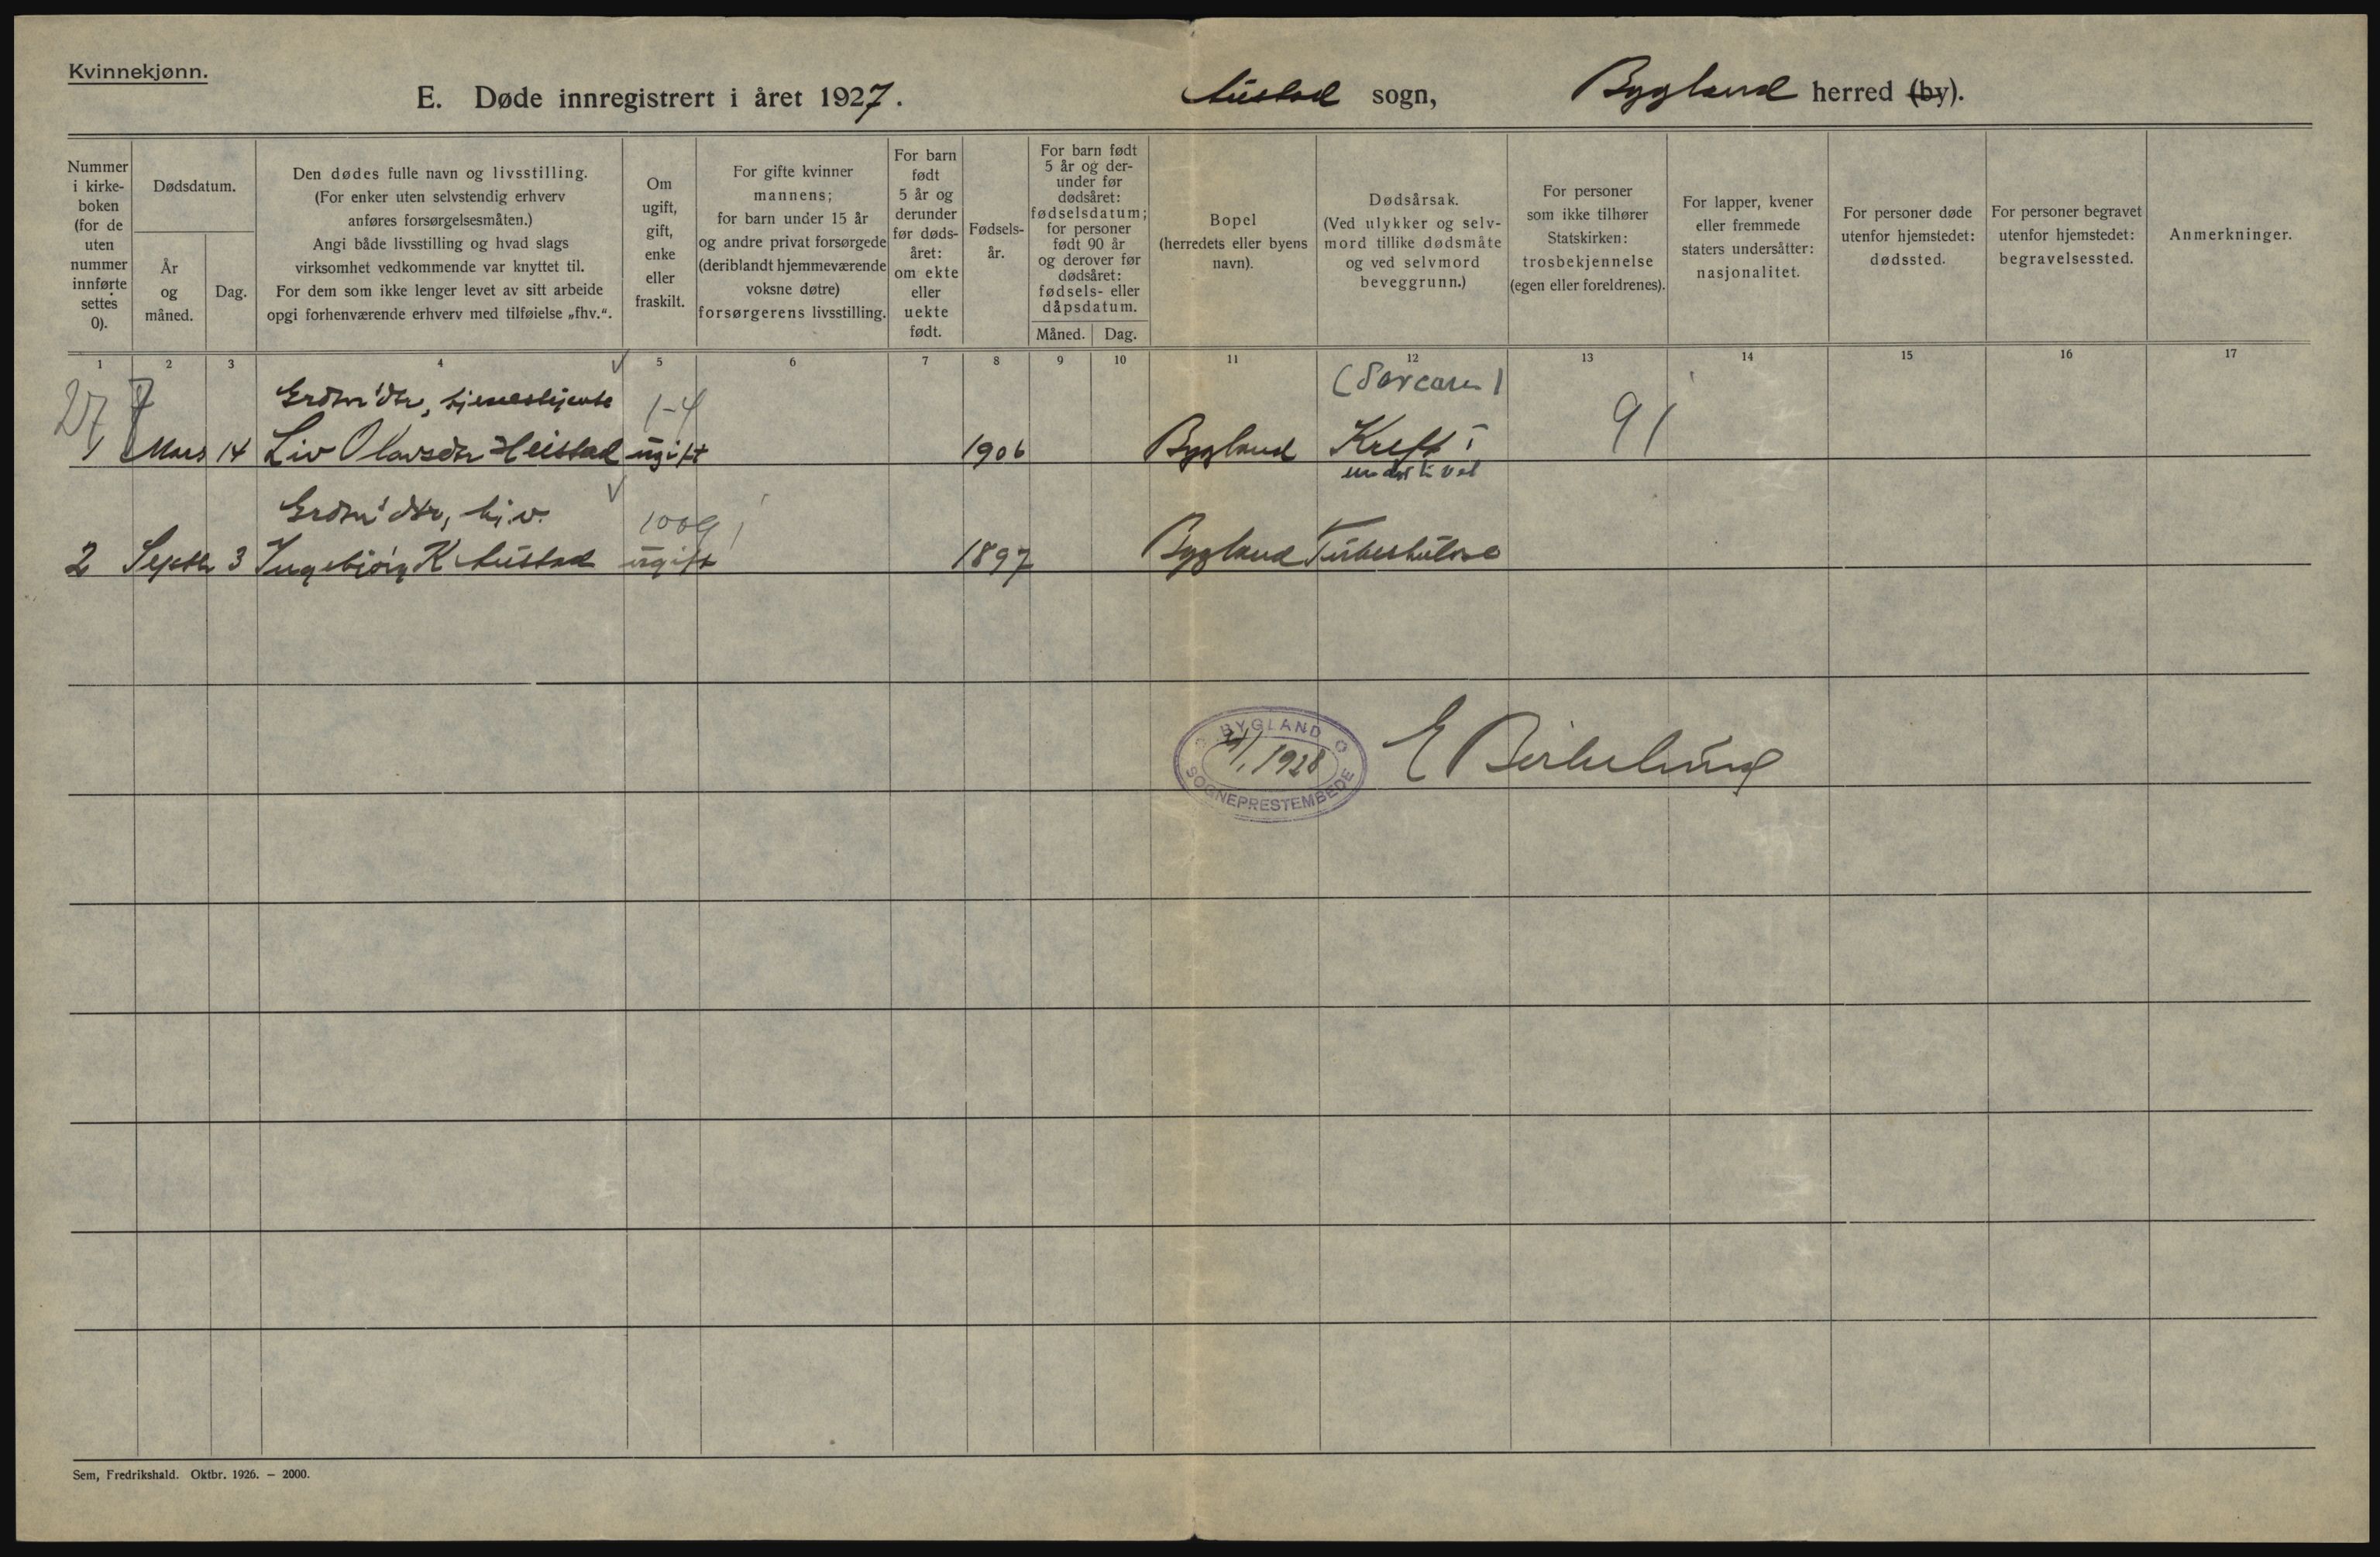 Kvinnekjønn.
E. Døde innregistrert i året 1927.
Austad sogn,
Bygland herred (by).
Nummer
i kirke-
boken
(for de
uten
nummer
innførte
settes
0).
Dødsdatum.
År
og
måned.
Dag.
Den dødes fulle navn og livsstilling.
(For enker uten selvstendig erhverv
anføres forsørgelsesmåten.)
Angi både livsstilling og hvad slags
virksomhet vedkommende var knyttet til.
For dem som ikke lenger levet av sitt arbeide
opgi forhenværende erhverv med tilføielse „fhv.“.
Om
ugift,
gift,
enke
eller
fraskilt.
For gifte kvinner
mannens;
for barn under 15 år
og andre privat forsørgede
(deriblandt hjemmeværende
voksne døtre)
forsørgerens livsstilling.
For barn
født
5 år og
derunder
før døds-
året:
om ekte
eller
uekte
født.
Fødsels-
år.
For barn født
5 år og der-
under før
dødsåret:
fødselsdatum;
for personer
født 90 år
og derover før
dødsåret:
fødsels- eller
dåpsdatum.
Måned. Dag.
Bopel
(herredets eller byens
navn).
Dødsårsak.
(Ved ulykker og selv-
mord tillike dødsmåte
og ved selvmord
beveggrunn.)
For personer
som ikke tilhører
Statskirken:
trosbekjennelse
(egen eller foreldrenes).
For lapper, kvener
eller fremmede
staters undersåtter:
nasjonalitet.
For personer døde
utenfor hjemstedet:
dødssted.
For personer begravet
utenfor hjemstedet:
begravelsessted.
Anmerkninger.
1 2 3 4 5 6 7 8 9 10 11 12 13 14 15 16 17
27 7
Grdbr dtr, tjenestejente 1-4 (Sarcom) 91
1 Mars 14 Liv Olavsdtr Heistad ugift 1906 Bygland Kreft i
underlivet
Grdbr dtr, hj.v. 1009
2 Septbr 3 Ingebjörg K Austad ugift 1897 Bygland Tuberkulose
BYGLAND
/1 1928
SOGNEPRESTEMBEDE
E Birkelund
Sem, Fredrikshald. Oktbr. 1926. – 2000.